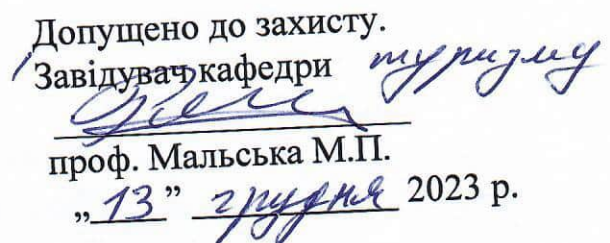 Допущено до захисту.
Завідувач кафедри туризму
проф. Мальська М.П.
„13” грудня 2023 р.